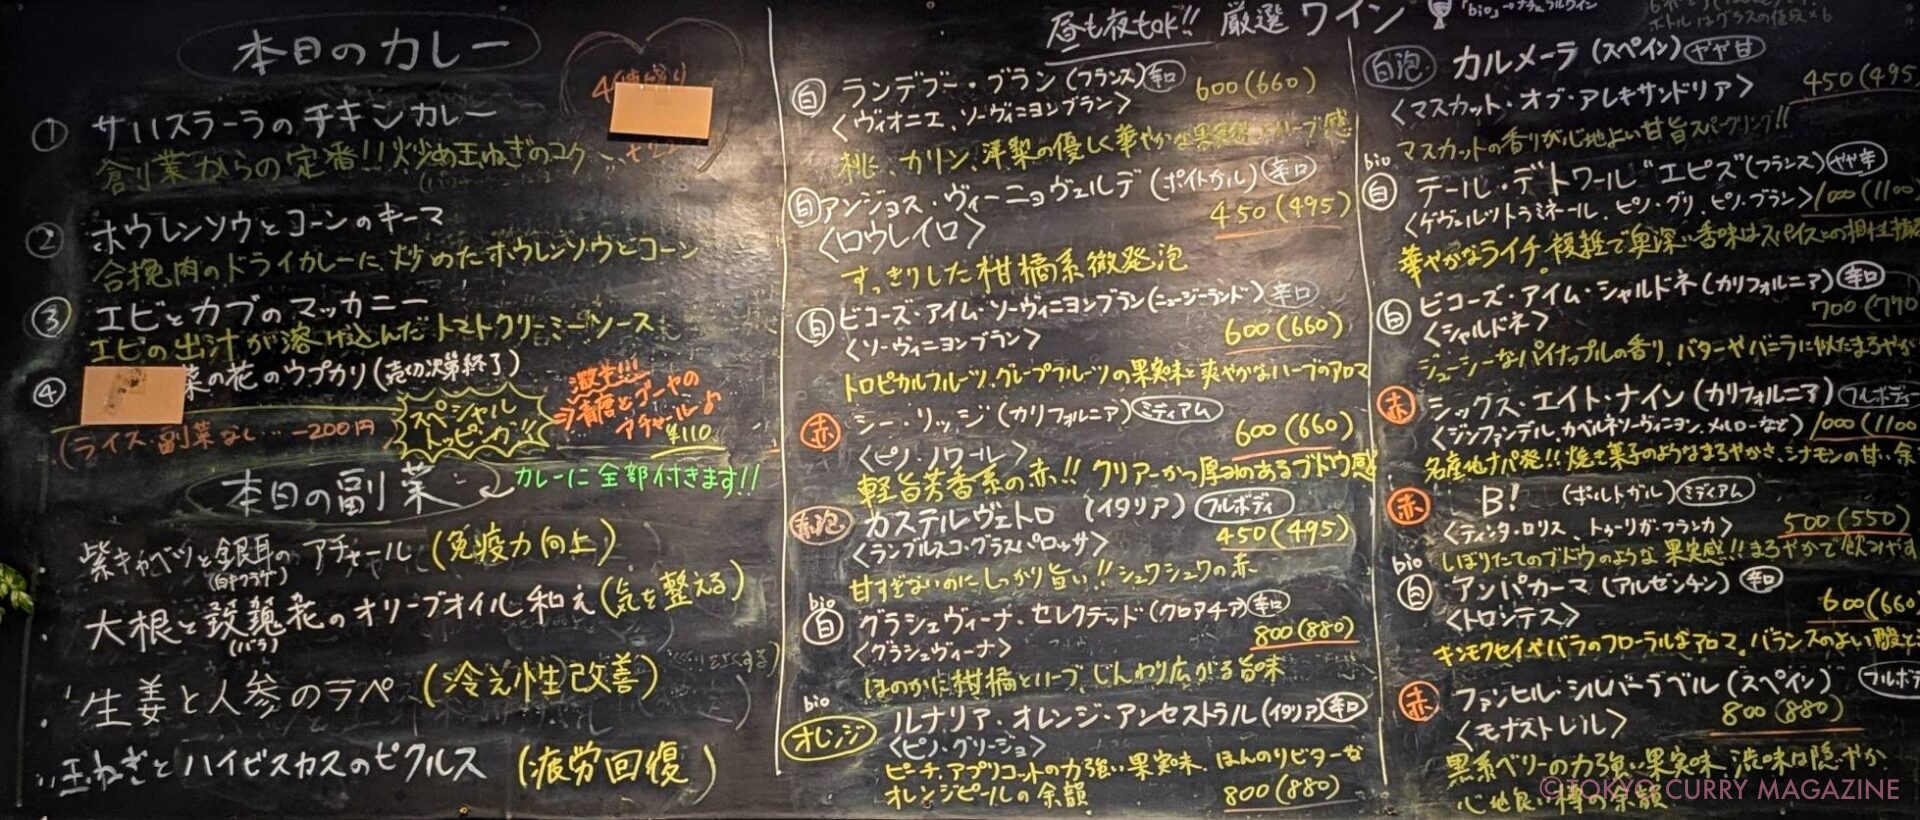 本日のカレー
① サハスラーラのチキンカレー
創業からの定番!! 炒め玉ねぎのコク
② ホウレンソウとコーンのキーマ
合挽肉のドライカレーに、炒めたホウレンソウとコーン
③ エビとカブのマッカニー
エビの出汁が溶け込んだトマトクリーミーソース
④ 菜の花のウプカリ(売切次第終了)
(ライス・副菜なし… -200円
スペシャルトッピング!!
激辛!!!
⇒青唐とゴーヤの
アチャール♪
¥110
本日の副菜
カレーに全部付きます!!
・紫キャベツと銀耳のアチャール (免疫力向上)
(白キクラゲ)
・大根と玫瑰花のオリーブオイル和え (気を整える)
(バラ)
・生姜と人参のラペ (冷え性改善)
・玉ねぎとハイビスカスのピクルス (疲労回復)
昼も夜もok!! 厳選ワイン
「bio」→ナチュラルワイン
白 ランデブー・ブラン (フランス) 辛口
600(660)
〈ヴィオニエ、ソーヴィニヨンブラン〉
桃、カリン、洋梨の優しく華やかな
白 アンジョス・ヴィーニョヴェルデ (ポルトガル) 辛口
450(495)
〈ロウレイロ〉
すっきりした柑橘系微発泡
白 ビコーズ・アイム・ソーヴィニヨンブラン (ニュージーランド) 辛口
600(660)
〈ソーヴィニヨンブラン〉
トロピカルフルーツ、グレープフルーツの果実味と爽やかなハーブのアロマ
赤 シー・リッジ (カリフォルニア) ミディアム
600(660)
〈ピノ・ノワール〉
軽旨芳香系の赤!! クリアーかつ厚みのあるブドウ感
赤泡 カステルヴェトロ (イタリア) フルボディ
450(495)
〈ランブルスコ・グラスパロッサ〉
甘すぎないのにしっかり旨い!! シュワシュワの赤
bio
白 グラシェヴィーナ・セレクテッド (クロアチア) 辛口
800(880)
〈グラシェヴィーナ〉
ほのかに柑橘とハーブ、じんわり広がる旨味
bio
オレンジ ルナリア・オレンジ・アンセストラル (イタリア) 辛口
〈ピノ・グリージョ〉
ピーチ、アプリコットの力強い果実味、ほんのりビターな
オレンジピールの余韻
800(880)
ボトルはグラスの値段×6
白泡 カルメーラ (スペイン) やや甘
450(495
〈マスカット・オブ・アレキサンドリア〉
マスカットの香りが心地よい甘旨スパークリング!!
bio
白 テール・デトワール"エピス" (フランス) やや辛
〈ゲヴェルツトラミネール、ピノ・グリ、ピノ・ブラン〉 1000(1100
華やかなライチ、複雑で奥深い香味はスパイスとの相性
白 ビコーズ・アイム・シャルドネ (カリフォルニア) 辛口
700(770
〈シャルドネ〉
ジューシーなパイナップルの香り、バターやバニラに似たまろやか
赤 シックス・エイト・ナイン (カリフォルニア) フルボディー
〈ジンファンデル、カベルネソーヴィニヨン、メルローなど〉 1000(1100
名産地ナパ発!! 焼き菓子のようなまろやかさ、シナモンの甘い余
赤 B! (ポルトガル) ミディアム
500(550)
〈ティンタ・ロリス、トゥーリガ・フランカ〉
しぼりたてのブドウのような果実感!! まろやかで飲みやす
bio
白 アンパカーマ (アルゼンチン) 辛口
600(660
〈トロンテス〉
キンモクセイやバラのフローラルなアロマ。バランスのよい酸と
赤 ファンヒル・シルバーラベル (スペイン) フルボデ
800(880)
〈モナストレル〉
黒系ベリーの力強い果実味、渋味は穏やか
心地良い樽の余韻
©TOKYO CURRY MAGAZINE